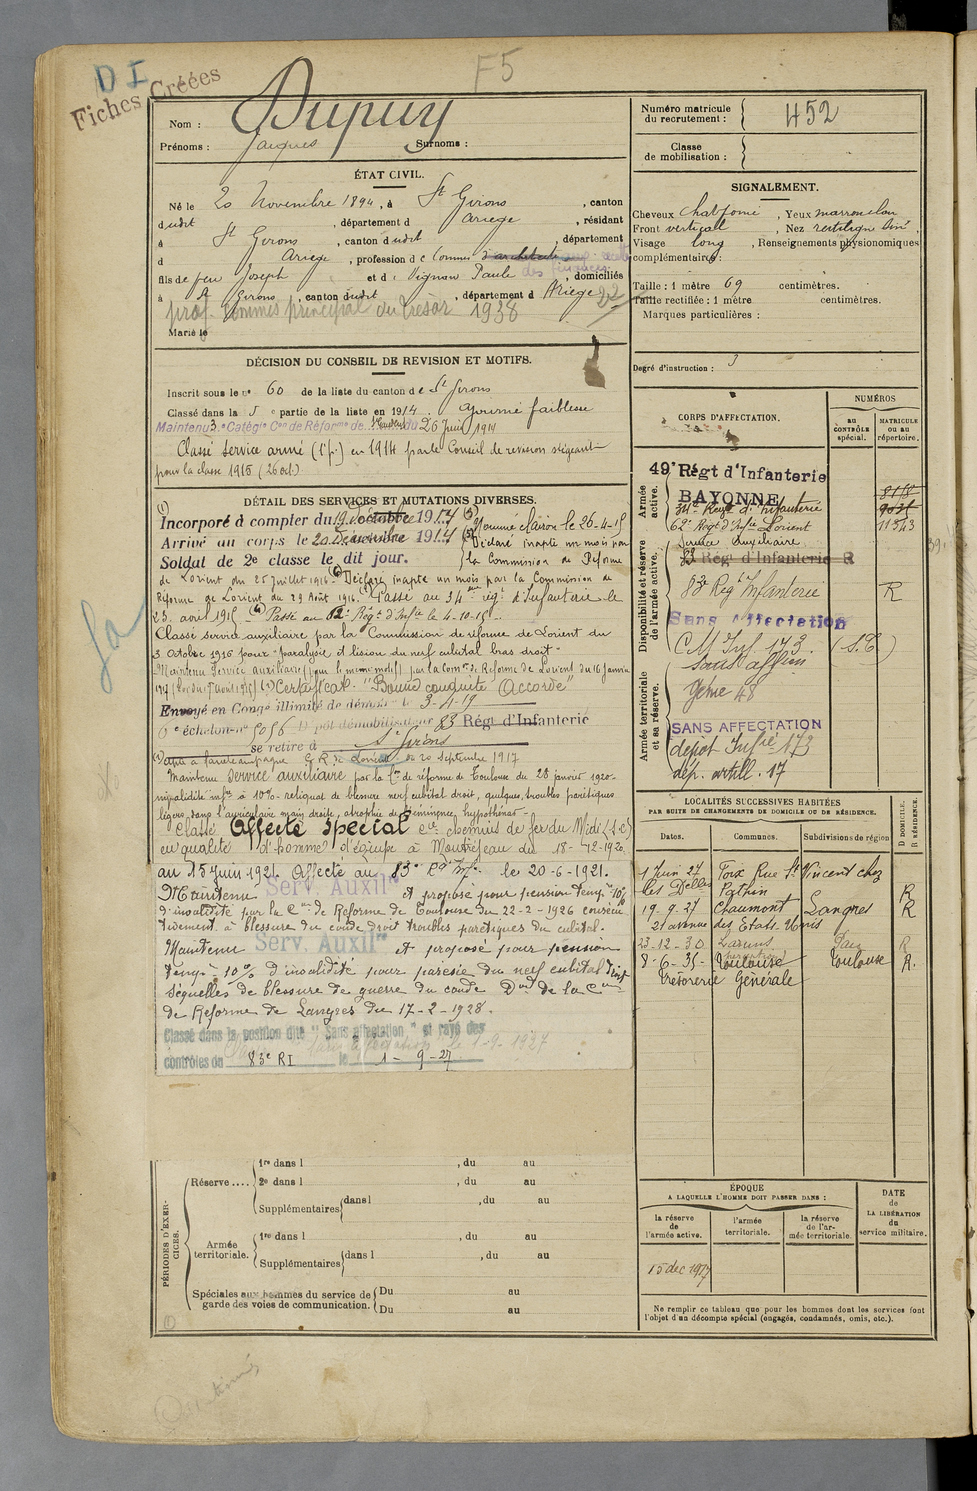 D I
Fiches Créées
F5
Nom : Dupuy
Prénoms : Jacques Surnoms :
ÉTAT CIVIL.
Né le 20 Novembre 1894, à St Girons, canton
dudit, département d Ariège, résidant
à St Girons, canton dudit, département
d Ariège, profession de Commis d'architecte
fils de feu Joseph et de Vignon Paule, domiciliés
à St Girons, canton dudit, département d Ariège
prof. Commis principal du Trésor 1938
Marié le
DÉCISION DU CONSEIL DE REVISION ET MOTIFS.
Inscrit sous le n° 60 de la liste du canton de St Girons
Classé dans la 5e partie de la liste en 1914. Ajourné faiblesse
Maintenu 3e Catégie Con de Réforme de du 26 Juin 1914
Classé service armé (1e p.) en 1914 par le Conseil de revision siégeant
pour la classe 1915 (26 oct.)
DÉTAIL DES SERVICES ET MUTATIONS DIVERSES.
Incorporé à compter du 19 1914
Arrivé au corps le 20 1914
Soldat de 2e classe le dit jour.
Nommé clairon le 26-4-15
Déclaré inapte un mois par
la Commission de Réforme
de Lorient du 25 juillet 1916. Déclaré inapte un mois par la Commission de
Réforme de Lorient du 29 Août 1916. Passé au 34me régt d'Infanterie le
23 avril 1915. Passé au 62e Régt d'Infie le 4-10-15.
Classé service auxiliaire par la Commission de réforme de Lorient du
3 Octobre 1916 pour "paralysie et lésion du nerf cubital bras droit"
Maintenu Service auxiliaire (pour le même motif) par la Comon de Réforme de Lorient du 16 janvier
1917 Certificat "Bonne conduite Accordé"
Envoyé en Congé illimité de démob le 3-4-19
6e échelon n° 5056 Dépôt démobilisateur 83 Régt d'Infanterie
se retire à St Girons
G.R. de Lorient du 20 septembre 1917
Maintenu service auxiliaire par la Con de réforme de Toulouse du 28 janvier 1920
invalidité infre à 10% reliquat de blessure nerf cubital droit, quelques troubles parétiques
légers dans l'auriculaire main droite, atrophie de l'éminence hypothénar
Classé Affecté spécial Cie chemins de fer du Midi (S.C)
en qualité d'homme d'équipe à Montréjeau du 18-12-1920
au 15 juin 1921. Affecté au 83e Rgt Infie le 20-6-1921.
Maintenu Serv. Auxilre et proposé pour pension tempre 10%
d'invalidité par la Con de Réforme de Toulouse du 22-2-1926 consécu
tivement à blessure du coude droit troubles parétiques du cubital.
Maintenu Serv. Auxilre et proposé pour pension
temp. 10% d'invalidité pour parésie du nerf cubital droit
séquelles de blessure de guerre du coude Droit de la Con
de Réforme de Langres du 17-2-1928.
Classé dans la position dite "Sans affectation" et rayé des
contrôles du 83e RI le 1-9-27
PÉRIODES D'EXERCICES.
Réserve....
1re dans l , du au
2e dans l , du au
Supplémentaires dans l , du au
Armée territoriale.
1re dans l , du au
Supplémentaires dans l , du au
Spéciales aux hommes du service de garde des voies de communication.
Du au
Du au
Numéro matricule du recrutement : 452
Classe de mobilisation :
SIGNALEMENT.
Cheveux chat foncé, Yeux marron clair
Front vertical, Nez rectiligne
Visage long, Renseignements physionomiques
complémentaires :
Taille : 1 mètre 69 centimètres.
Taille rectifiée : 1 mètre centimètres.
Marques particulières :
Degré d'instruction : 3
CORPS D'AFFECTATION.
NUMÉROS
au CONTRÔLE spécial.
MATRICULE OU AU répertoire.
Armée active.
49e Régt d'Infanterie
BAYONNE
34e Régt d'Infanterie
62e Régt d'Infie Lorient 11543
Service Auxiliaire
Disponibilité et réserve de l'armée active.
83 Régt d'Infanterie R
83e Rég Infanterie R
Sans Affectation
C M Inf. 173. (S.C)
Sans affon
Armée territoriale et sa réserve.
Génie 48
SANS AFFECTATION
dépôt Infie 173
dép. artill. 17
LOCALITÉS SUCCESSIVES HABITÉES
PAR SUITE DE CHANGEMENTS DE DOMICILE OU DE RÉSIDENCE.
Dates. Communes. Subdivisions de région
D DOMICILE. R RÉSIDENCE.
1 Juin 27 Foix Rue St Vincent chez
les Delles Pathin R
19-9-27 Chaumont Langres R
21 avenue des Etats-Unis
23-12-30 Laruns Pau R
8-6-35 Toulouse Toulouse R.
Trésorerie Générale
ÉPOQUE
A LAQUELLE L'HOMME DOIT PASSER DANS :
la réserve de l'armée active.
l'armée territoriale.
la réserve de l'armée territoriale.
DATE de LA LIBÉRATION du service militaire.
15 dec 1917
Ne remplir ce tableau que pour les hommes dont les services font
l'objet d'un décompte spécial (engagés, condamnés, omis, etc.).